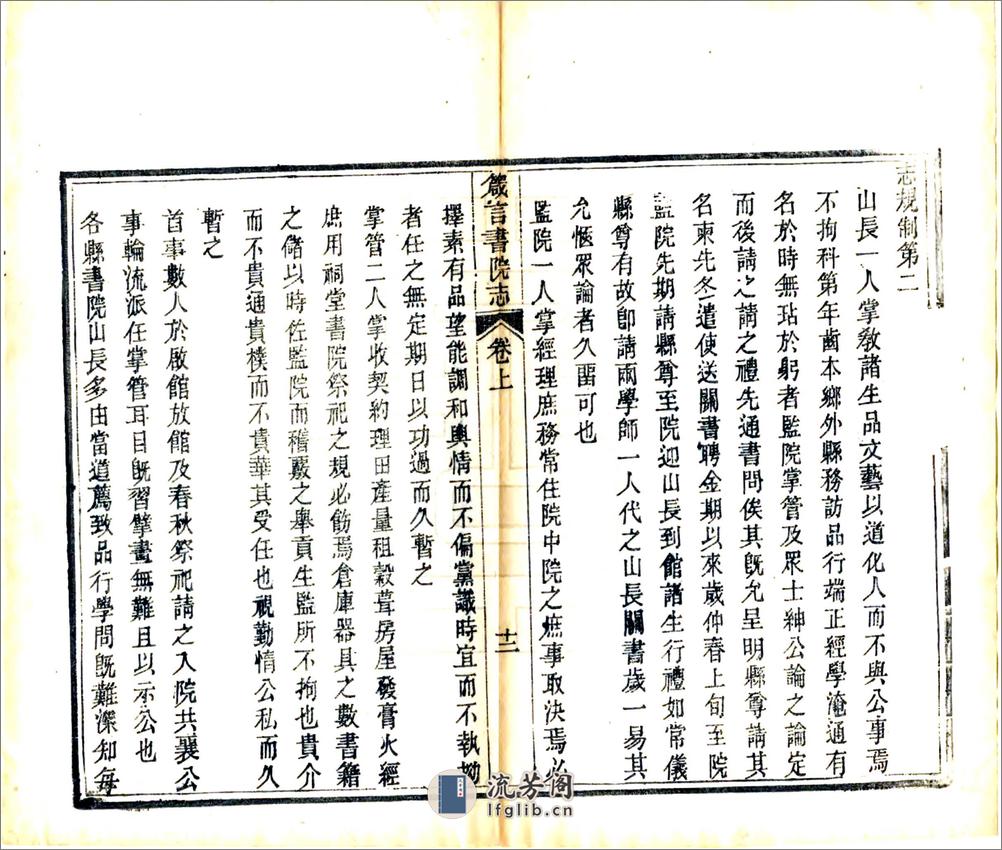 志規制第二
山長一人掌敎諸生品文藝以道化人而不與公事焉
不拘科第年齒本鄉外縣務訪品行端正經學淹通有
名於時無玷於躬者監院掌管及眾士紳公論之論定
而後請之請之禮先通書問俟其旣允呈明縣尊請其
名柬先冬遣使送關書聘金期以來歲仲春上旬至院
監院先期請縣尊至院迎山長到館諸生行禮如常儀
縣尊有故卽請兩學師一人代之山長關書歲一易其
允愜眾論者久畱可也
監院一人掌經理庶務常住院中院之庶事取決焉必
箴言書院志 卷上 十二
擇素有品望能調和輿情而不偏黨識時宜而不執拗
者任之無定期日以功過而久暫之
掌管二人掌收契約理田產量租穀葺房屋發膏火經
庶用祠堂書院祭祀之規必飭焉倉庫器具之數書籍
之儲以時佐監院而稽覈之舉貢生監所不拘也貴介
而不貴通貴樸而不貴華其受任也視勤惰公私而久
暫之
首事數人於啟館放館及春秋祭祀請之入院共襄公
事輪流派任掌管耳目旣習擘畫無難且以示公也
各縣書院山長多由當道薦致品行學問旣難深知每
流芳阁
lfglib.cn